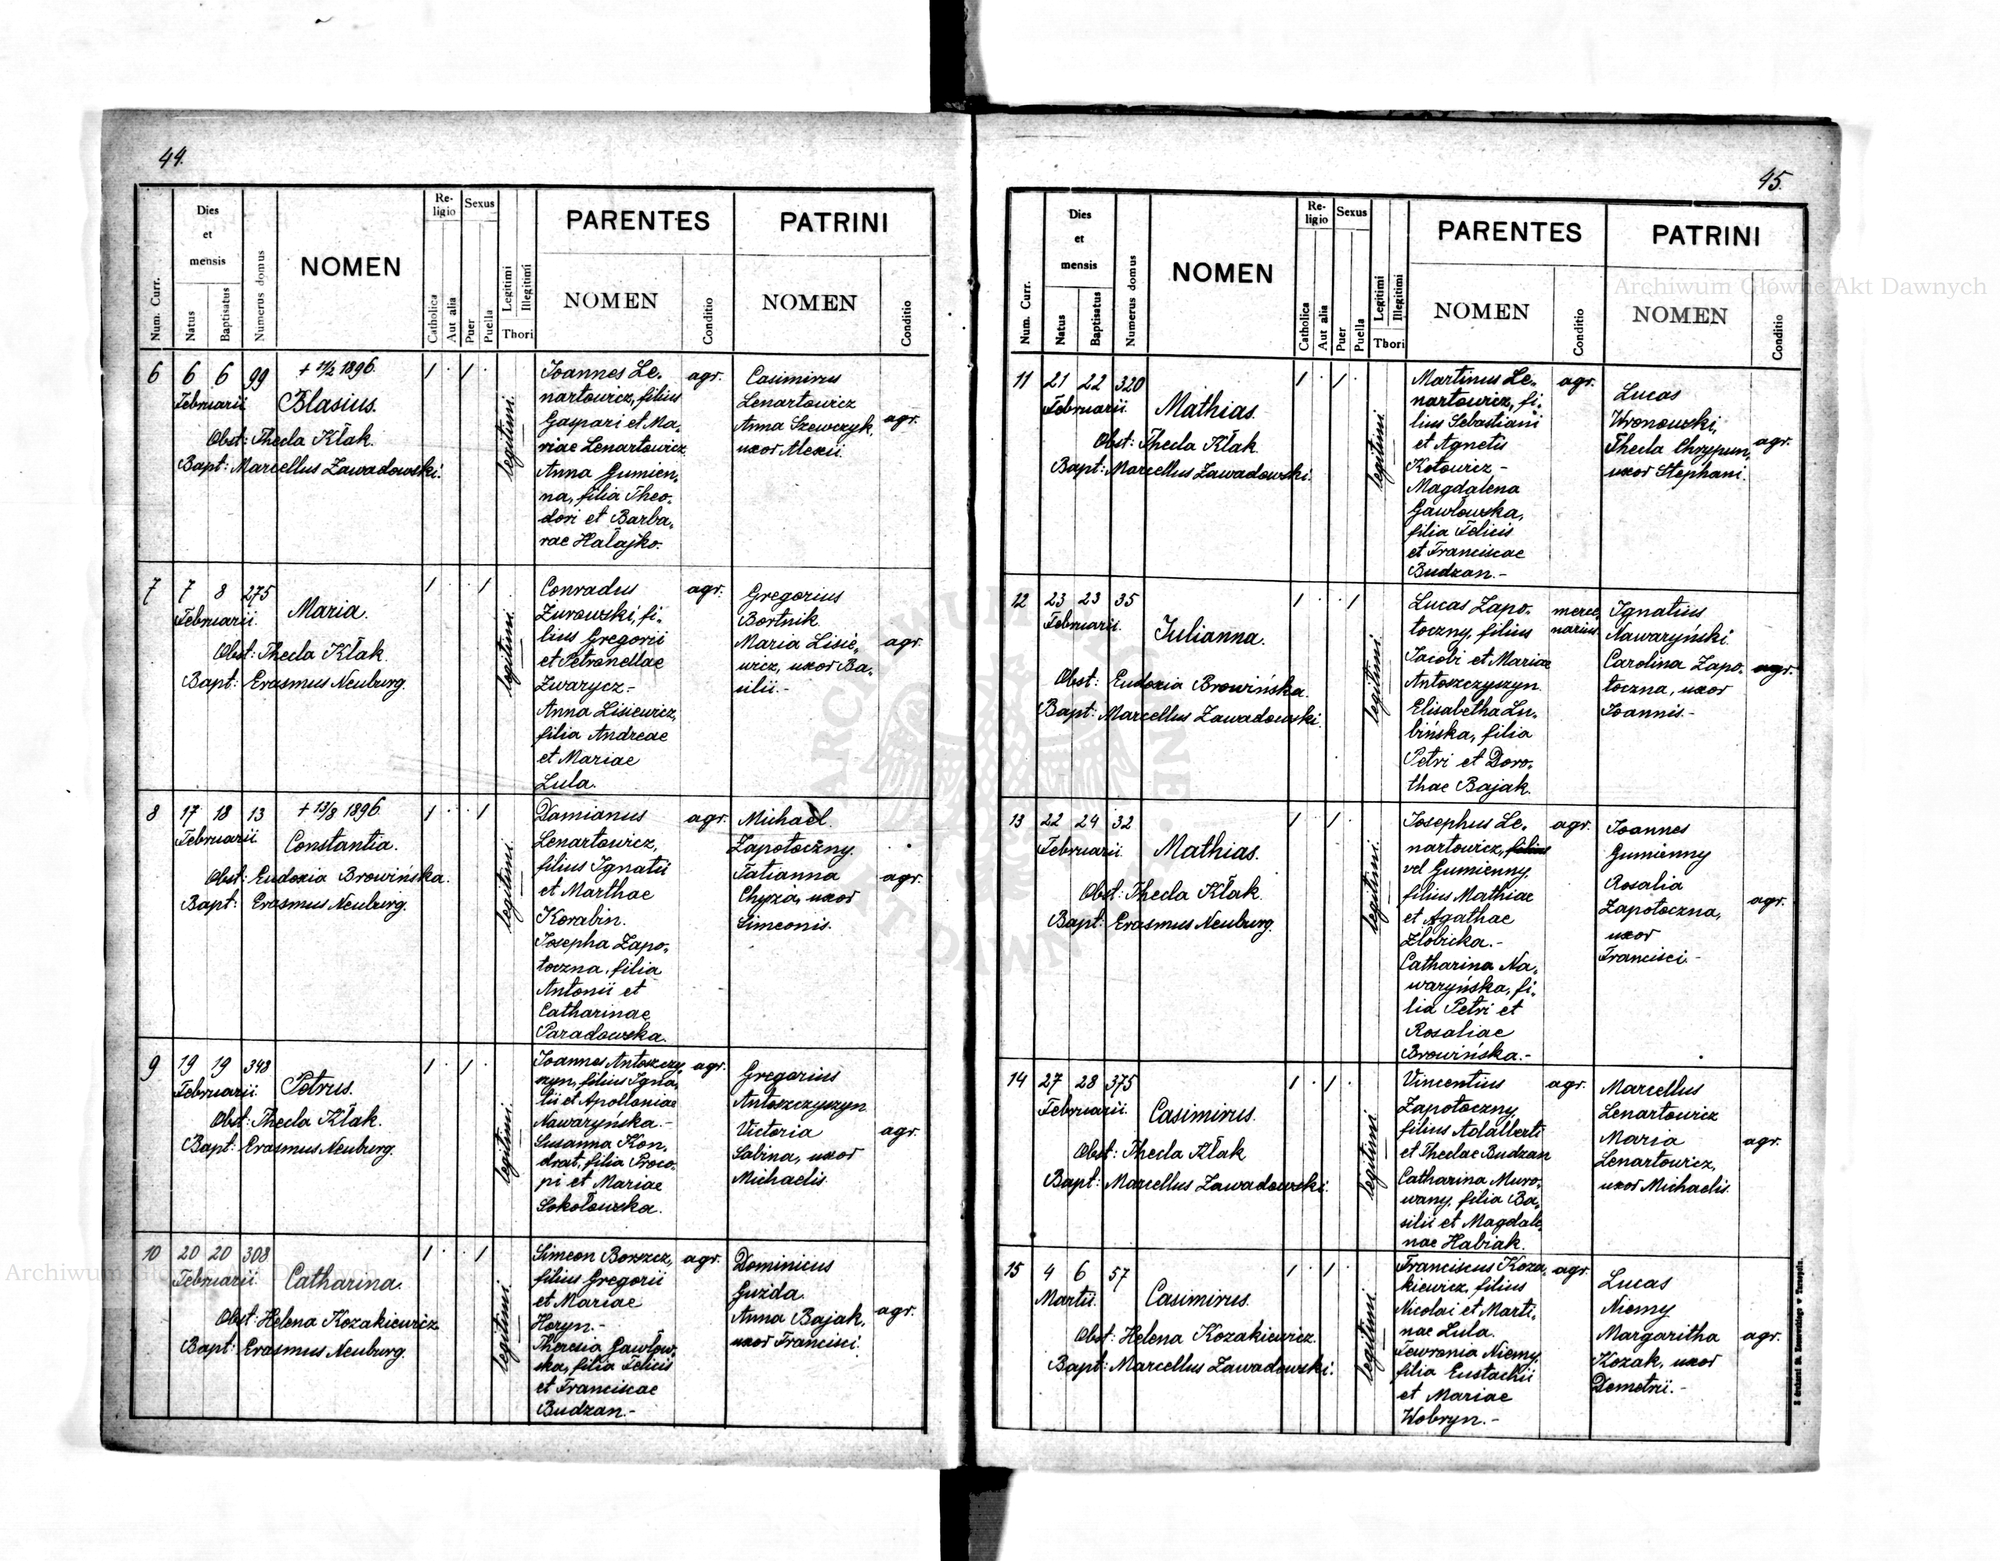 44.
Num. Curr.
Dies
et
mensis
Natus
Baptisatus
Numerus domus
NOMEN
Re-
ligio
Catholica
Aut alia
Sexus
Puer
Puella
Legitimi
Illegitimi
Thori
PARENTES
NOMEN
Conditio
PATRINI
NOMEN
Conditio
6 6 6 99 + 11/2 1896. 1 · 1 ·
Februarii Blasius.
Obst: Thecla Kłak.
Bapt: Marcellus Zawadowski.
legitimi.
Joannes Le-
nartowicz, filius
Gaspari et Ma-
riae Lenartowicz
Anna Gumien-
na, filia Theo-
dori et Barba-
rae Hałajko.
agr.
Casimirus
Lenartowicz
Anna Szewczyk,
uxor Alexii
agr.
7 7 8 275 1 · · 1
Februarii Maria.
Obst: Thecla Kłak
Bapt: Erasmus Neuburg.
legitimi.
Conradus
Żurowski, fi-
lius Gregorii
et Petronellae
Zwarycz -
Anna Lisiewicz,
filia Andreae
et Mariae
Lula.
agr.
Gregorius
Bortnik
Maria Lisie-
wicz, uxor Ba-
silii. -
agr.
8 17 18 13 + 13/8 1896. 1 · · 1
Februarii Constantia.
Obst: Eudoxia Browińska.
Bapt: Erasmus Neuburg.
legitimi.
Damianus
Lenartowicz,
filius Ignatii
et Marthae
Korabin.
Josepha Zapo-
toczna, filia
Antonii et
Catharinae
Paradowska.
agr.
Michael
Zapotoczny.
Tatianna
Chyża, uxor
Simeonis.
agr.
9 19 19 348 1 · 1 ·
Februarii Petrus.
Obst: Thecla Kłak.
Bapt: Erasmus Neuburg.
legitimi.
Joannes Antoszczy-
szyn, filius Igna-
tii et Apolloniae
Nawaryńska. -
Susanna Kon-
drat, filia Proco-
pi et Mariae
Sokołowska.
agr.
Gregorius
Antoszczyszyn
Victoria
Sabina, uxor
Michaelis.
agr.
10 20 20 308 1 · · 1
Februarii Catharina.
Obst: Helena Kozakiewicz
Bapt: Erasmus Neuburg.
legitimi.
Simeon Borszcz,
filius Gregorii
et Mariae
Horyn. -
Theresia Gawłow-
ska, filia Felicis
et Franciscae
Budzan. -
agr.
Dominicus
Guzda.
Anna Bajak,
uxor Francisci.
agr.
45.
Num. Curr.
Dies
et
mensis
Natus
Baptisatus
Numerus domus
NOMEN
Re-
ligio
Catholica
Aut alia
Sexus
Puer
Puella
Legitimi
Illegitimi
Thori
PARENTES
NOMEN
Conditio
PATRINI
NOMEN
Conditio
11 21 22 320 1 · 1 ·
Februarii. Mathias.
Obst: Thecla Kłak
Bapt: Marcellus Zawadowski.
legitimi.
Martinus Le-
nartowicz, fi-
lius Sebastiani
et Agnetis
Kotowicz -
Magdalena
Gawłowska,
filia Felicis
et Franciscae
Budzan. -
agr.
Lucas
Wronowski,
Thecla Chrzypun,
uxor Stephani.
agr.
12 23 23 35 1 · · 1
Februarii. Julianna.
Obst: Eudoxia Browińska
Bapt: Marcellus Zawadowski.
legitimi.
Lucas Zapo-
toczny, filius
Jacobi et Mariae
Antoszczyszyn.
Elisabetha Lu-
bińska, filia
Petri et Doro-
thae Bajak.
merce-
narius
Ignatius
Nawaryński
Carolina Zapo-
toczna, uxor
Joannis. -
agr.
13 22 24 32 1 · 1 ·
Februarii Mathias.
Obst: Thecla Kłak.
Bapt: Erasmus Neuburg.
legitimi.
Josephus Le-
nartowicz, filius
vel Gumienny,
filius Mathiae
et Agathae
Złobicka. -
Catharina Na-
waryńska, fi-
lia Petri et
Rosaliae
Browińska. -
agr.
Joannes
Gumienny
Rosalia
Zapotoczna,
uxor
Francisci. -
agr.
14 27 28 375 1 · 1 ·
Februarii. Casimirus.
Obst: Thecla Kłak
Bapt: Marcellus Zawadowski.
legitimi.
Vincentius
Zapotoczny,
filius Adalberti
et Theclae Budzan
Catharina Muro-
wany, filia Ba-
silii et Magdale-
nae Habiak.
agr.
Marcellus
Lenartowicz
Maria
Lenartowicz,
uxor Michaelis.
agr.
15 4 6 57 1 · 1 ·
Martii. Casimirus.
Obst: Helena Kozakiewicz.
Bapt: Marcellus Zawadowski.
legitimi.
Franciscus Koza-
kiewicz, filius
Nicolai et Marti-
nae Lula.
Fewronia Niemy,
filia Eustachii
et Mariae
Wobryn. -
agr.
Lucas
Niemy
Margaritha
Kozak, uxor
Demetrii. -
agr.
Archiwum Główne Akt Dawnych
Archiwum Główne Akt Dawnych